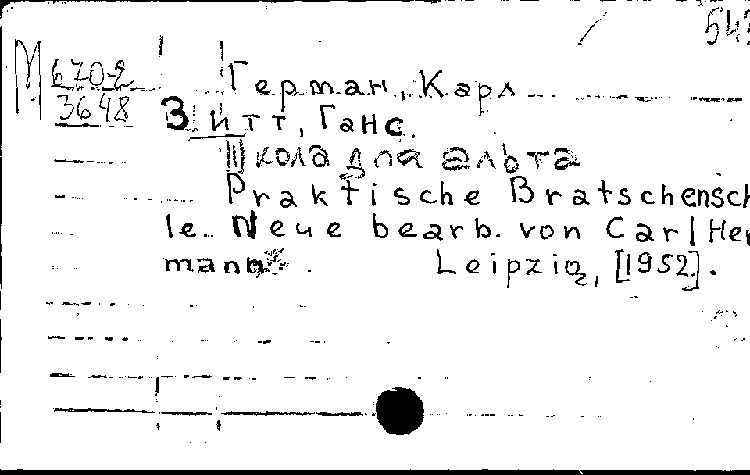 543
М 670-2
3648
Герман, Карл
Зитт, Ганс.
Школа для альта
Praktische Bratschensch
le. Neue bearb. von Carl Her
mann. Leipzig, [1952].